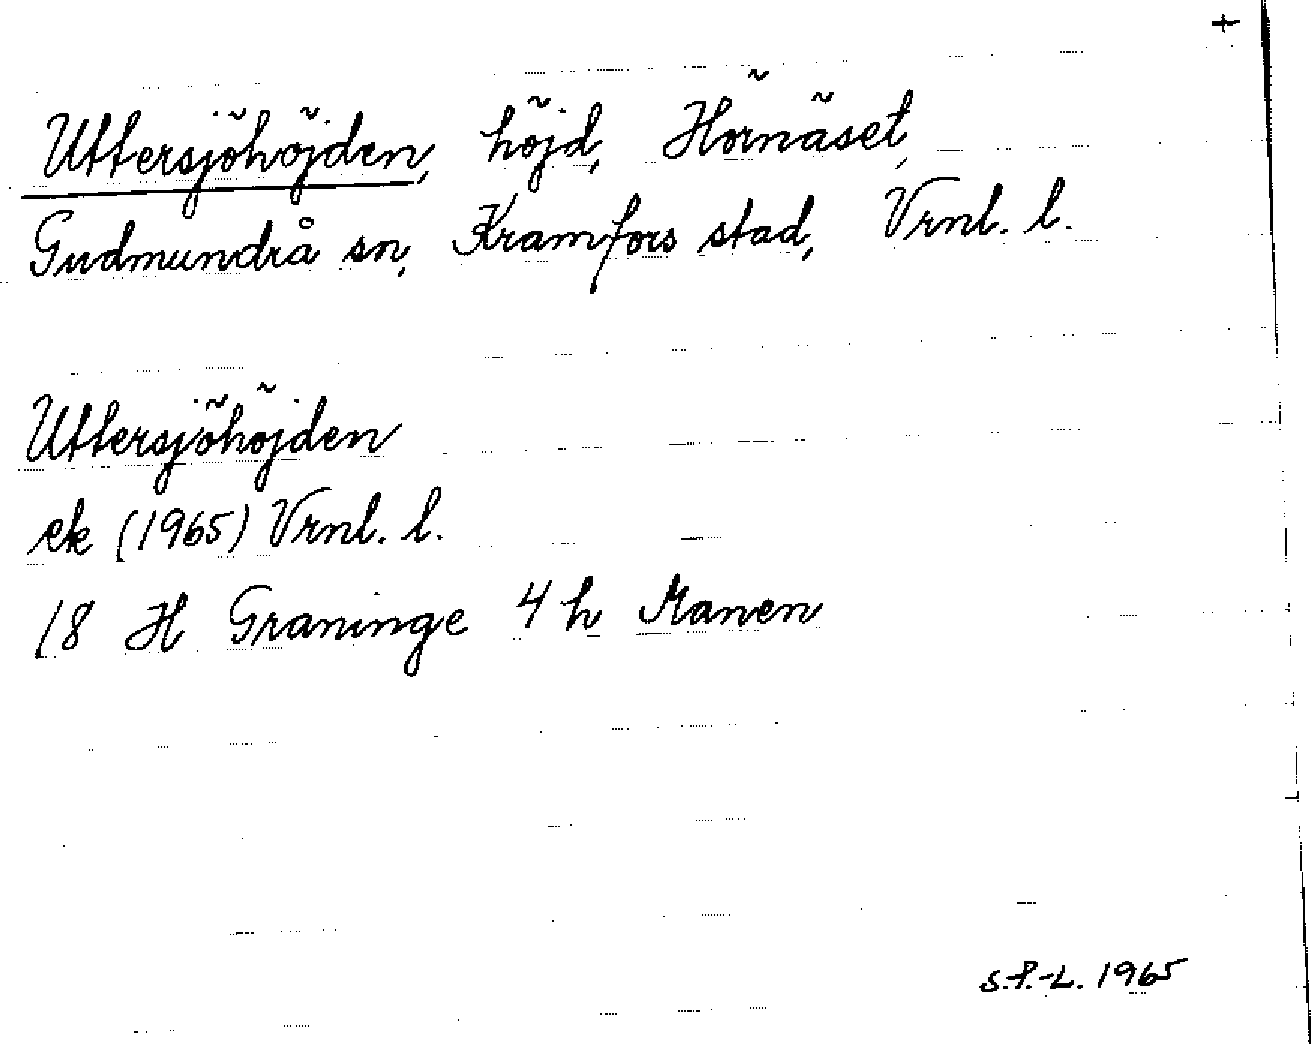 +
Uttersjöhöjden, höjd, Hörnäset,
Gudmundrå sn, Kramfors stad, Vrnl. l.
Uttersjöhöjden
ek (1965) Vrnl. l.
18 H Graninge 4 h Manen
S.P.-L. 1965